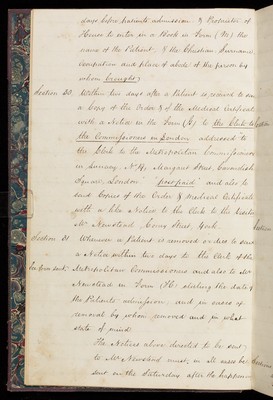 days before patients admission & Proprietor of
House to enter in a Book in Form (      ) the
name of the Patient & the Christian Surname,
Occupation and place of abode of the person by
whom brought;
Section 20. Within two days after a Patient is received to send
a Copy of the Order & of the Medical Certificate
with a Notice in the Form (    ) to the Clerk to
the Commissioners in London addressed to
the Clerk to the Metropolitan Commissioners
in Lunacy, No 4, Margaret Street, Cavendish
Square, London post paid and also to
send Copies of the Order & Medical Certificate
with a like Notice to the Clerk to the
Mr Newstead Coney Street, York.
Section 21. Whenever a Patient is removed or dies to send
a Notice within two days to the Clerk of the
Metropolitan Commissioners and also to Mr
Newstead in Form (H) stating the date of
the Patients admission; and in cases of
removal by whom removed and in what
state of mind
The Notices above directed to be sent
to Mr Newstead must in all cases be
sent on the Saturday after the